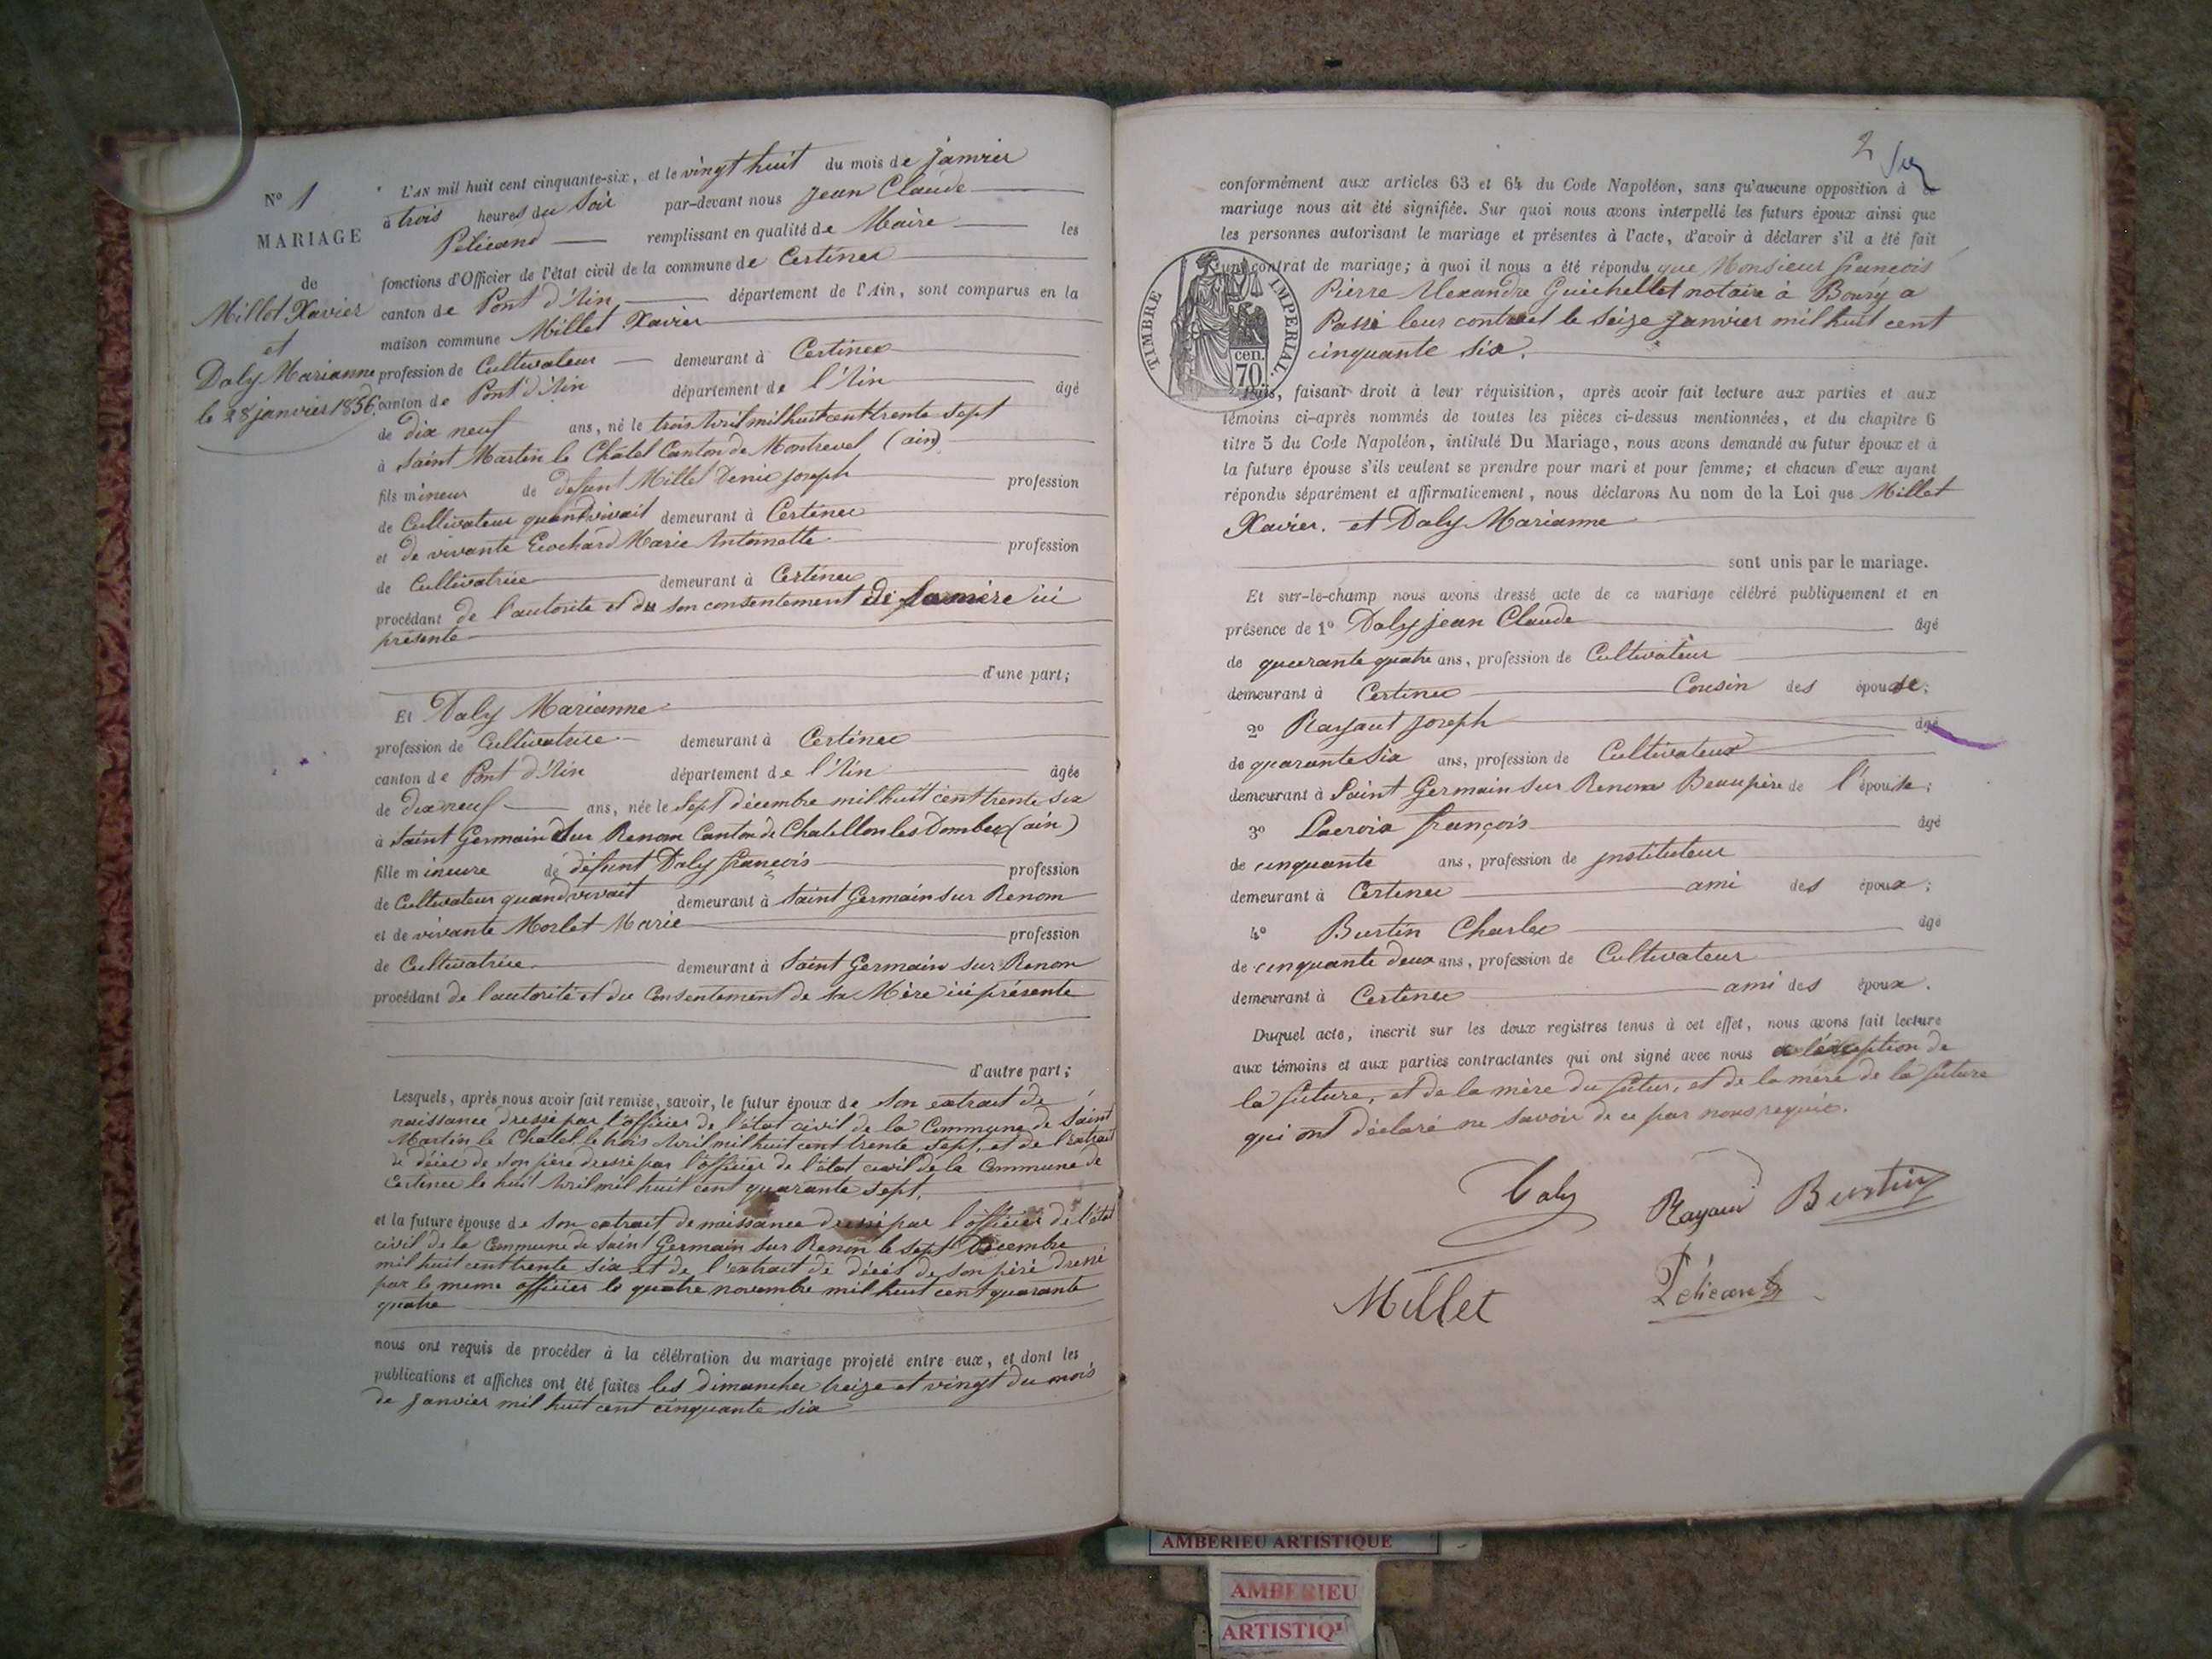 N° 1
MARIAGE
de
Millet Xavier
et
Daly Marianne
le 28 janvier 1856.
L'AN mil huit cent cinquante-six, et le vingt huit du mois de janvier
à trois heures du soir par-devant nous Jean Claude
Pélicand remplissant en qualité de Maire les
fonctions d'Officier de l'état civil de la commune de Certines
canton de Pont d'Ain département de l'Ain, sont comparus en la
maison commune Millet Xavier
profession de Cultivateur demeurant à Certines
canton de Pont d'Ain département de l'Ain âgé
de dix neuf ans, né le trois Avril mil huit cent trente sept
à Saint Martin le Chatel Canton de Montrevel (ain)
fils mineur de défunt Millet Denis Joseph profession
de Cultivateur quand vivait demeurant à Certines
et de vivante Marie Antoinette profession
de Cultivatrice demeurant à Certines
procédant de l'autorité et du son consentement de sa mère ici
présente
d'une part;
Et Daly Marianne
profession de Cultivatrice demeurant à Certines
canton de Pont d'Ain département de l'Ain âgée
de dix neuf ans, née le Sept décembre mil huit cent trente six
à Saint Germain Sur Renom Canton de Chatillon les Dombes (ain)
fille mineure de défunt Daly françois profession
de Cultivateur quand vivait demeurant à Saint Germain sur Renom
et de vivante Morlet Marie profession
de Cultivatrice demeurant à Saint Germain sur Renom
procédant de l'autorité et du Consentement de sa Mère ici présente
d'autre part;
Lesquels, après nous avoir fait remise, savoir, le futur époux de son extrait de
naissance dressé par l'officier de l'état civil de la Commune de Saint
Martin le Chatel le trois Avril mil huit cent trente sept, et de l'Extrait
de décès de son père dressé par l'officier de l'état civil de la Commune de
Certines le huit Avril mil huit cent quarante sept,
et la future épouse de son extrait de naissance dressé par l'officier de l'état
civil de la Commune de Saint Germain sur Renon le sept Décembre
mil huit cent trente six et de l'extrait de décès de son père dressé
par le meme officier le quatre novembre mil huit cent quarante
quatre
nous ont requis de procéder à la célébration du mariage projeté entre eux, et dont les
publications et affiches ont été faites les dimanches treize et vingt du mois
de janvier mil huit cent cinquante six
2
conformément aux articles 63 et 64 du Code Napoléon, sans qu'aucune opposition à
mariage nous ait été signifiée. Sur quoi nous avons interpellé les futurs époux ainsi que
les personnes autorisant le mariage et présentes à l'acte, d'avoir à déclarer s'il a été fait
un contrat de mariage; à quoi il nous a été répondu que Monsieur françois
Pierre Alexandre Guichellet notaire à Bourg a
Passé leur contrat le Seize Janvier mil huit cent
cinquante six.
TIMBRE IMPERIAL.
cen.
70
Puis, faisant droit à leur réquisition, après avoir fait lecture aux parties et aux
témoins ci-après nommés de toutes les pièces ci-dessus mentionnées, et du chapitre 6
titre 5 du Code Napoléon, intitulé Du Mariage, nous avons demandé au futur époux et à
la future épouse s'ils veulent se prendre pour mari et pour femme; et chacun d'eux ayant
répondu séparément et affirmativement, nous déclarons Au nom de la Loi que Millet
Xavier. et Daly Marianne
sont unis par le mariage.
Et sur-le-champ nous avons dressé acte de ce mariage célébré publiquement et en
présence de 1° Daly Jean Claude âgé
de quarante quatre ans, profession de Cultivateur
demeurant à Certines Cousin des épouse;
2° Rayaut Joseph âgé
de quarante six ans, profession de Cultivateur
demeurant à Saint Germain sur Renom Beaupère de l'épouse;
3° Lacroix françois âgé
de cinquante ans, profession de instituteur
demeurant à Certines ami des époux;
4° Burtin Charles âgé
de cinquante deux ans, profession de Cultivateur
demeurant à Certines ami des époux.
Duquel acte, inscrit sur les deux registres tenus à cet effet, nous avons fait lecture
aux témoins et aux parties contractantes qui ont signé avec nous à l'éxception de
la future, et de la mère du futur, et de la mère de la future
qui ont déclaré ne savoir de ce par nous requis.
Daly Rayaud Burtin
Millet Pélicand
AMBERIEU ARTISTIQUE
AMBERIEU
ARTISTIQ